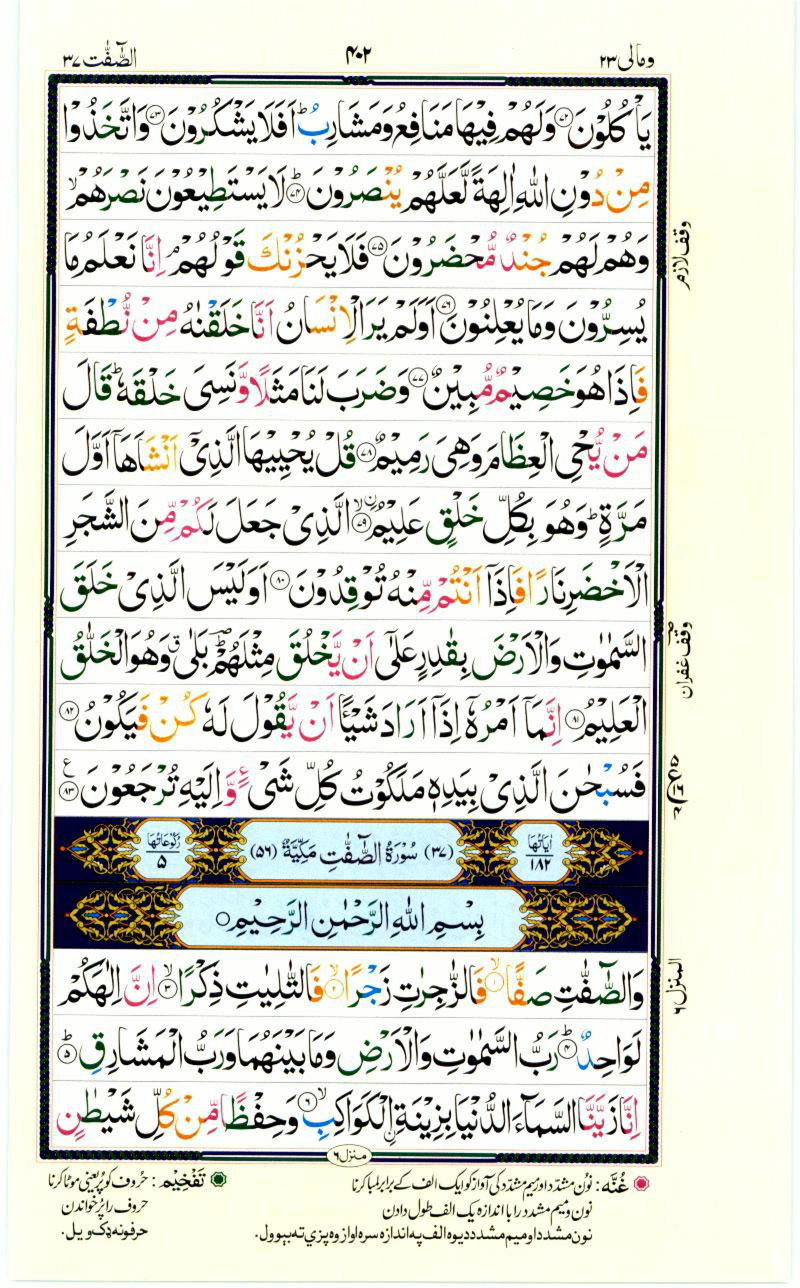 الصّٰٓفّٰت ٣٧
۴۰۲
ومالی ٢٣
يَاْكُلُوْنَ ﴿٧٢﴾ وَلَهُمْ فِيْهَا مَنَافِعُ وَمَشَارِبُ ؕ اَفَلَا يَشْكُرُوْنَ ﴿٧٣﴾ وَاتَّخَذُوْا
مِنْ دُوْنِ اللّٰهِ اٰلِهَةً لَّعَلَّهُمْ يُنْصَرُوْنَ ؕ﴿٧٤﴾ لَا يَسْتَطِيْعُوْنَ نَصْرَهُمْ ۙ
وَهُمْ لَهُمْ جُنْدٌ مُّحْضَرُوْنَ ﴿٧٥﴾ فَلَا يَحْزُنْكَ قَوْلُهُمْ ۘ اِنَّا نَعْلَمُ مَا
يُسِرُّوْنَ وَمَا يُعْلِنُوْنَ ﴿٧٦﴾ اَوَلَمْ يَرَ الْاِنْسَانُ اَنَّا خَلَقْنٰهُ مِنْ نُّطْفَةٍ
فَاِذَا هُوَ خَصِيْمٌ مُّبِيْنٌ ﴿٧٧﴾ وَضَرَبَ لَنَا مَثَلًا وَّنَسِيَ خَلْقَهٗ ؕ قَالَ
مَنْ يُّحْيِ الْعِظَامَ وَهِيَ رَمِيْمٌ ﴿٧٨﴾ قُلْ يُحْيِيْهَا الَّذِيْٓ اَنْشَاَهَآ اَوَّلَ
مَرَّةٍ ؕ وَهُوَ بِكُلِّ خَلْقٍ عَلِيْمُ ۙ﴿٧٩﴾ الَّذِيْ جَعَلَ لَكُمْ مِّنَ الشَّجَرِ
الْاَخْضَرِ نَارًا فَاِذَآ اَنْتُمْ مِّنْهُ تُوْقِدُوْنَ ﴿٨٠﴾ اَوَلَيْسَ الَّذِيْ خَلَقَ
السَّمٰوٰتِ وَالْاَرْضَ بِقٰدِرٍ عَلٰٓى اَنْ يَّخْلُقَ مِثْلَهُمْ ؕ بَلٰى ۗ وَهُوَ الْخَلّٰقُ
الْعَلِيْمُ ﴿٨١﴾ اِنَّمَآ اَمْرُهٗٓ اِذَآ اَرَادَ شَيْـًٔا اَنْ يَّقُوْلَ لَهٗ كُنْ فَيَكُوْنُ ﴿٨٢﴾
فَسُبْحٰنَ الَّذِيْ بِيَدِهٖ مَلَكُوْتُ كُلِّ شَيْءٍ وَّاِلَيْهِ تُرْجَعُوْنَ ﴿٨٣﴾
وقف لازم
وقف غفران
اٰيَاتُهَا ١٨٢
(٣٧) سُوْرَةُ الصّٰٓفّٰتِ مَكِّيَّةٌ (٥٦)
رُكُوْعَاتُهَا ٥
بِسْمِ اللّٰهِ الرَّحْمٰنِ الرَّحِيْمِ ○
وَالصّٰٓفّٰتِ صَفًّا ۙ﴿١﴾ فَالزّٰجِرٰتِ زَجْرًا ۙ﴿٢﴾ فَالتّٰلِيٰتِ ذِكْرًا ۙ﴿٣﴾ اِنَّ اِلٰهَكُمْ
لَوَاحِدٌ ؕ﴿٤﴾ رَبُّ السَّمٰوٰتِ وَالْاَرْضِ وَمَا بَيْنَهُمَا وَرَبُّ الْمَشَارِقِ ؕ﴿٥﴾
اِنَّا زَيَّنَّا السَّمَآءَ الدُّنْيَا بِزِيْنَةِ اۨلْكَوَاكِبِ ۙ﴿٦﴾ وَحِفْظًا مِّنْ كُلِّ شَيْطٰنٍ
المنزل ٦
منزل ٦
غُنَّه : نون مشدّد اور میم مشدّد کی آواز کو ایک الف کے برابر لمبا کرنا
نون و میم مشدد را با اندازه یک الف طول دادن
نون مشدد او میم مشدد دیوه الف په اندازه سره اواز وه پزي ته بېوول.
تَفْخِيْم : حروف کو پُر یعنی موٹا کرنا
حروف را پُر خواندن
حرفونه ډک ویل.